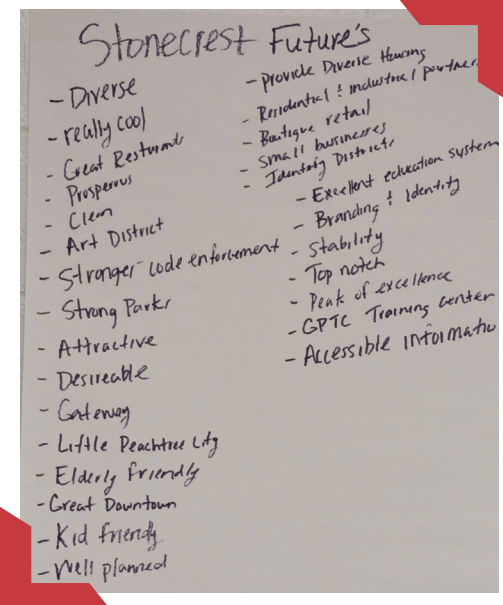 Stonecrest Future's
- Diverse
- really cool
- Great Resturants
- Prosperous
- Clean
- Art District
- Stronger code enforcement
- Strong Parks
- Attractive
- Desireable
- Gateway
- Little Peachtree City
- Elderly Friendly
- Great Downtown
- Kid friendly
- Well planned
- provide Diverse Housing
- Residential & industrial partner
- Boutique retail
- Small businesses
- Identity Districts
- Excellent education system
- Branding & Identity
- Stability
- Top notch
- Peak of excellence
- GPTC Training Center
- Accessible informatio